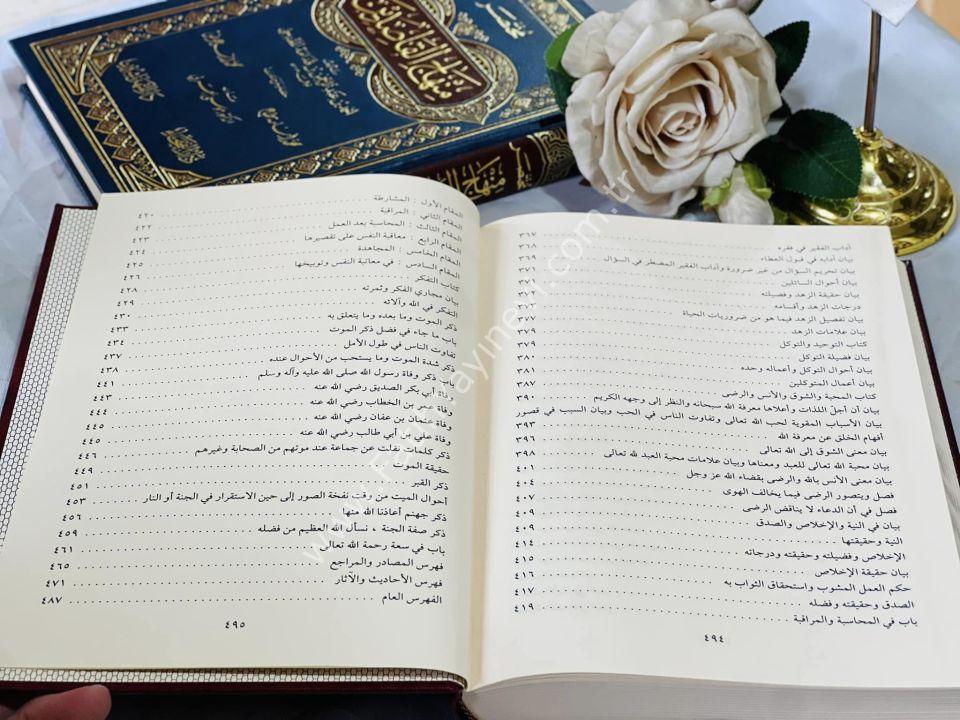 مختصر
منهاج القاصدين
مختصر
منهاج
آداب الفقير في فقره ٣٦٧
بيان آدابه في قبول العطاء ٣٦٨
بيان تحريم السؤال من غير ضرورة وآداب الفقير المضطر في السؤال ٣٦٩
بيان أحوال السائلين ٣٧١
بيان حقيقة الزهد وفضيلته
درجات الزهد وأقسامه
بيان تفصيل الزهد فيما هو من ضروريات الحياة
بيان علامات الزهد ٣٧٧
كتاب التوحيد والتوكل ٣٧٩
بيان فضيلة التوكل ٣٧٩
بيان أحوال التوكل وأعماله وحده ٣٨٠
بيان أعمال المتوكلين ٣٨١
كتاب المحبة والشوق والأنس والرضى ٣٨٧
بيان أن أجلّ اللذات وأعلاها معرفة الله سبحانه والنظر إلى وجهه الكريم ٣٩٠
بيان الأسباب المقوية لحب الله تعالى وتفاوت الناس في الحب وبيان السبب في قصور
أفهام الخلق عن معرفة الله ٣٩٣
بيان معنى الشوق إلى الله تعالى ٣٩٦
بيان محبة الله تعالى للعبد ومعناها وبيان علامات محبة العبد لله تعالى ٣٩٨
بيان معنى الأنس بالله والرضى بقضاء الله عز وجل ٤٠١
فصل ويتصور الرضى فيما يخالف الهوى ٤٠٧
فصل في أن الدعاء لا يناقض الرضى ٤٠٩
بيان في النية والإخلاص والصدق ٤٠٩
النية وحقيقتها ٤١٤
الإخلاص وفضيلته وحقيقته ودرجاته ٤١٥
بيان حقيقة الإخلاص ٤١٦
حكم العمل المشوب واستحقاق الثواب به ٤١٧
الصدق وحقيقته وفضله ٤١٩
باب في المحاسبة والمراقبة
٤٩٤
المقام الأول : المشارطة ٤٢٠
المقام الثاني : المراقبة ٤٢٢
المقام الثالث : المحاسبة بعد العمل ٤٢٣
المقام الرابع : معاقبة النفس على تقصيرها ٤٢٤
المقام الخامس : المجاهدة ٤٢٥
المقام السادس : في معاتبة النفس وتوبيخها ٤٢٦
كتاب التفكر ٤٢٨
بيان مجاري الفكر وثمرته ٤٢٩
التفكر في الله وآلائه ٤٣٠
ذكر الموت وما بعده وما يتعلق به ٤٣٣
باب ما جاء في فضل ذكر الموت ٤٣٤
تفاوت الناس في طول الأمل ٤٣٧
ذكر شدة الموت وما يستحب من الأحوال عنده ٤٣٨
باب ذكر وفاة رسول الله صلى الله عليه وآله وسلم ٤٤١
وفاة أبي بكر الصديق رضي الله عنه ٤٤٣
وفاة عمر بن الخطاب رضي الله عنه ٤٤٤
وفاة عثمان بن عفان رضي الله عنه ٤٤٥
وفاة علي بن أبي طالب رضي الله عنه ٤٤٥
ذكر كلمات نقلت عن جماعة عند موتهم من الصحابة وغيرهم ٤٤٦
حقيقة الموت ٤٤٩
ذكر القبر ٤٥١
أحوال الميت من وقت نفخة الصور إلى حين الاستقرار في الجنة أو النار ٤٥٣
ذكر جهنم أعاذنا الله منها ٤٥٦
ذكر صفة الجنة ، نسأل الله العظيم من فضله ٤٥٩
باب في سعة رحمة الله تعالى ٤٦١
فهرس المصادر والمراجع ٤٦٥
فهرس الأحاديث والآثار ٤٧١
الفهرس العام ٤٨٧
٤٩٥